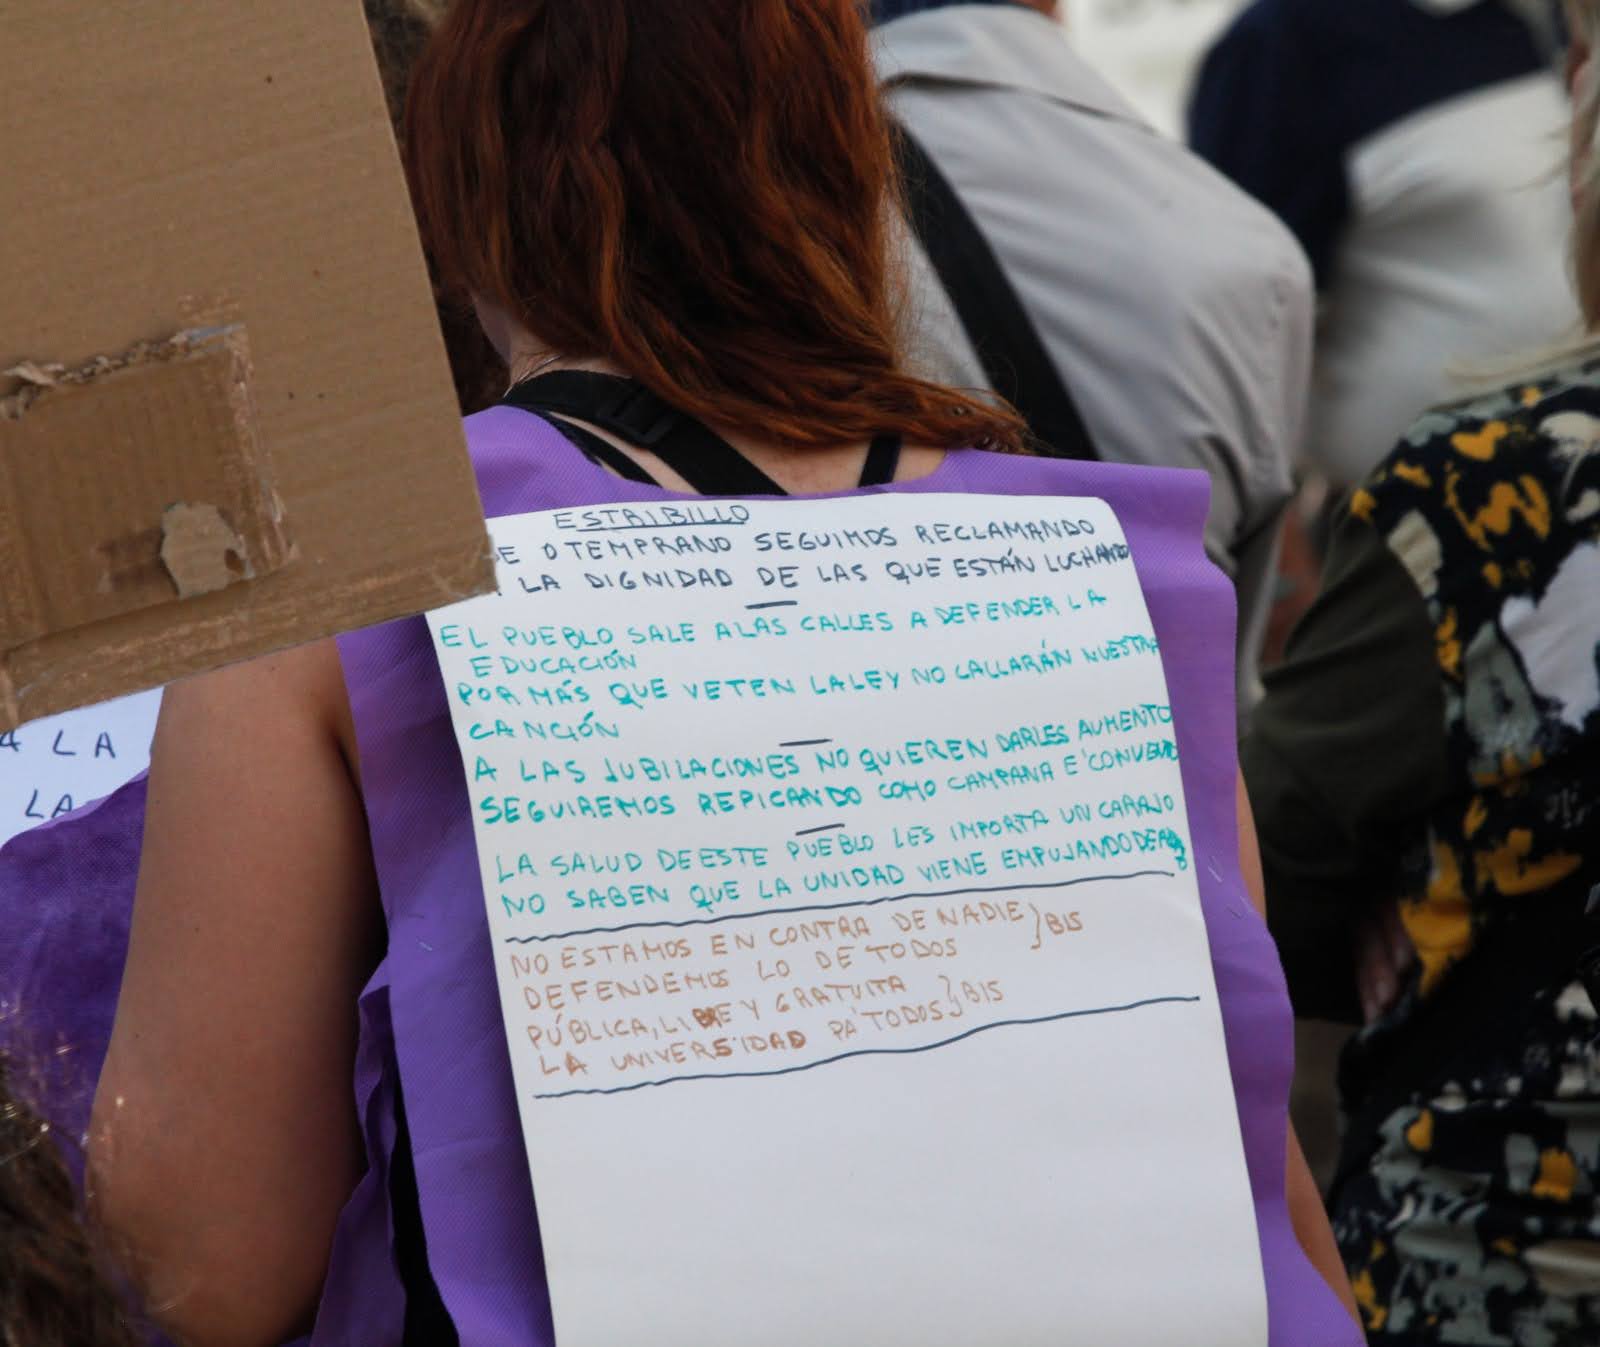 ESTRIBILLO
O TEMPRANO SEGUIMOS RECLAMANDO
LA DIGNIDAD DE LAS QUE ESTÁN LUCHANDO
EL PUEBLO SALE A LAS CALLES A DEFENDER LA
EDUCACIÓN
POR MÁS QUE VETEN LA LEY NO CALLARÁN NUESTRA
CANCIÓN
A LAS JUBILACIONES NO QUIEREN DARLES AUMENTO
SEGUIREMOS REPICANDO COMO CAMPANA E' CONVENTO
LA SALUD DE ESTE PUEBLO LES IMPORTA UN CARAJO
NO SABEN QUE LA UNIDAD VIENE EMPUJANDO
NO ESTAMOS EN CONTRA DE NADIE } BIS
DEFENDEMOS LO DE TODOS
PÚBLICA, LIBRE Y GRATUITA } BIS
LA UNIVERSIDAD PA' TODOS
A LA
LA